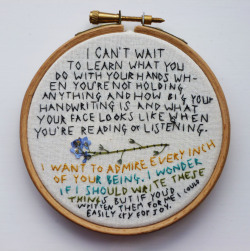 I CAN'T WAIT
TO LEARN WHAT YOU
DO WITH YOUR HANDS WH-
EN YOU'RE NOT HOLDING
ANYTHING AND HOW BIG YOUR
HANDWRITING IS AND WHAT
YOUR FACE LOOKS LIKE WHEN
YOU'RE READING OR LISTENING.
I WANT TO ADMIRE EVERY INCH
OF YOUR BEING. I WONDER
IF I SHOULD WRITE THESE
THINGS BUT IF YOU'D
WRITTEN THEM FOR ME I COULD
EASILY CRY FOR JOY.